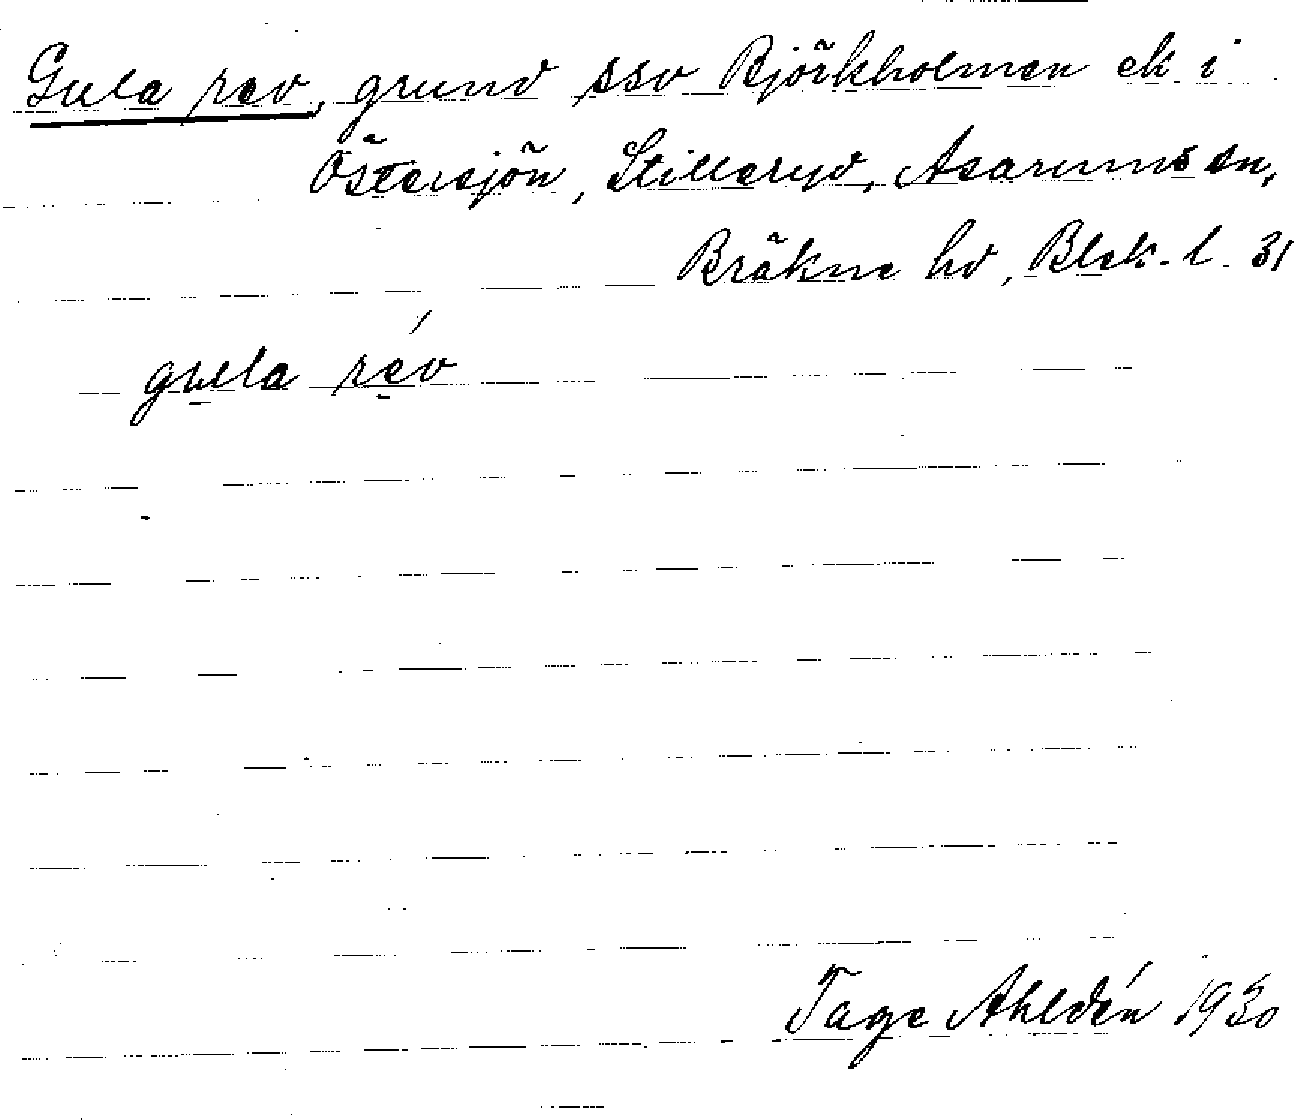 Gula rev, grund ssv Björkholmen ek. i
Östersjön, Stilleryd, Asarums sn,
Bräkne hd, Blek. l. 31
gu̠la re̠´v
Tage Ahldén 1930